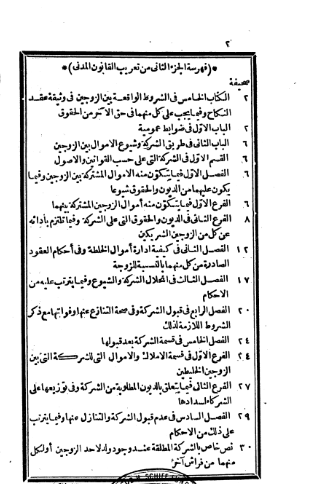 ٢
*(فهرسة الجزء الثانى من تعريب القانون المدنى)*
صحيفة
٢ الكتاب الخامس فى الشروط الواقعة بين الزوجين فى وثيقة عقد
النكاح وفيما يجب على كل منهما فى حق الآخر من الحقوق
٢ الباب الاول فى ضوابط عمومية
٦ الباب الثانى فى طريق الشركة وشيوع الاموال بين الزوجين
٦ القسم الاول فى الشركة التى على حسب القوانين والاصول
٦ الفصل الاول فيما يتكون منه الاموال المشتركة بين الزوجين وفيما
يكون عليهما من الديون والحقوق شيوعا
٦ الفرع الاول فيما يتكون منه أموال الزوجين المشتركة بينهما
٨ الفرع الثانى فى الديون والحقوق التى على الشركة وفيما تلتزم بأدائه
عن كل من الزوجين الشريكين
١٢ الفصل الثانى فى كيفية ادارة أموال الخلطة وفى أحكام العقود
الصادرة من كل منهما بالنسبة للزوجة
١٧ الفصل الثالث فى انحلال الشركة والشيوع وفيما يترتب عليه من
الاحكام
٢٠ الفصل الرابع فى قبول الشركة وفى صحة التنازع عنها وفواتها مع ذكر
الشروط اللازمة لذلك
٢٤ الفصل الخامس فى قسمة الشركة بعد قبولها
٢٤ الفرع الاول فى قسمة الاملاك والاموال التى للشركة التى بين
الزوجين الخليطين
٢٧ الفرع الثانى فيما يتعلق بالديون المطلوبة من الشركة وفى توزيعها على
الشركاء لسدادها
٢٩ الفصل السادس فى عدم قبول الشركة والتنازل عنها وفيما يترتب
على ذلك من الاحكام
٣٠ نص خاص بالشركة المطلقة عند وجود ولد لاحد الزوجين أو لكل
منهما من فراش آخر